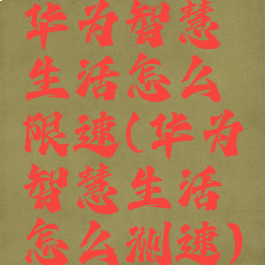 华为智慧
生活怎么
限速(华为
智慧生活
怎么测速)